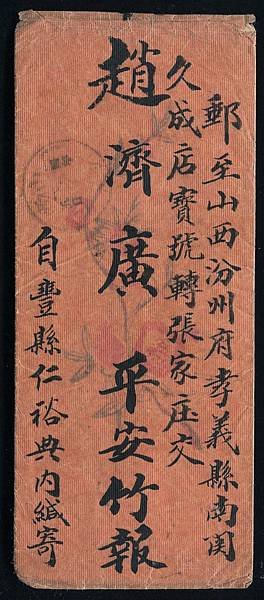 郵至山西汾州府孝義縣南関
久成店寶號轉張家庄交
趙濟廣平安竹報
自豐縣仁裕典内緘寄